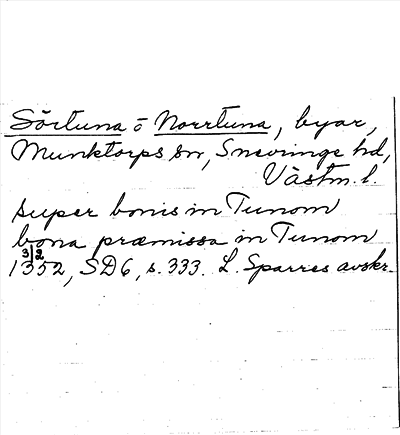 Sörtuna o Norrtuna, byar,
Munktorps sn, Snevringe hd,
Västm. l.
super bonis in Tunom
bona præmissa in Tunom
1352 3/2, SD6, s. 333. L. Sparres avskr.